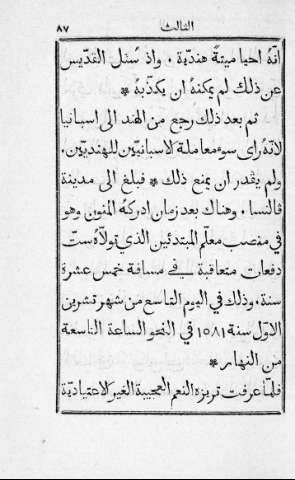 الثالث ٨٧
انّهُ احيا ميتةً هنديّة . واذ سُئل القدّيس
عن ذلك لم يمكنهُ ان يكذّبهُ *
ثم بعد ذلك رجع من الهند الى اسبانيا
لانّهُ راى سوء معاملة لاسبانيّين للهنديّين .
ولم يقدر ان يمنع ذلك * فبلغ الى مدينة
فالنسا . وهناك بعد زمان ادركهُ المنون وهو
في منصب معلّم المبتدئين الذي تولّاهُ ستّ
دفعات متعاقبة في مسافة خمس عشرة
سنة . وذلك في اليوم التاسع من شهر تشرين
الاول سنة ١٥٨١ في النحو الساعة التاسعة
من النهار *
فلمّا عرفت تريزه النعم العجيبة الغير الاعتياديّة